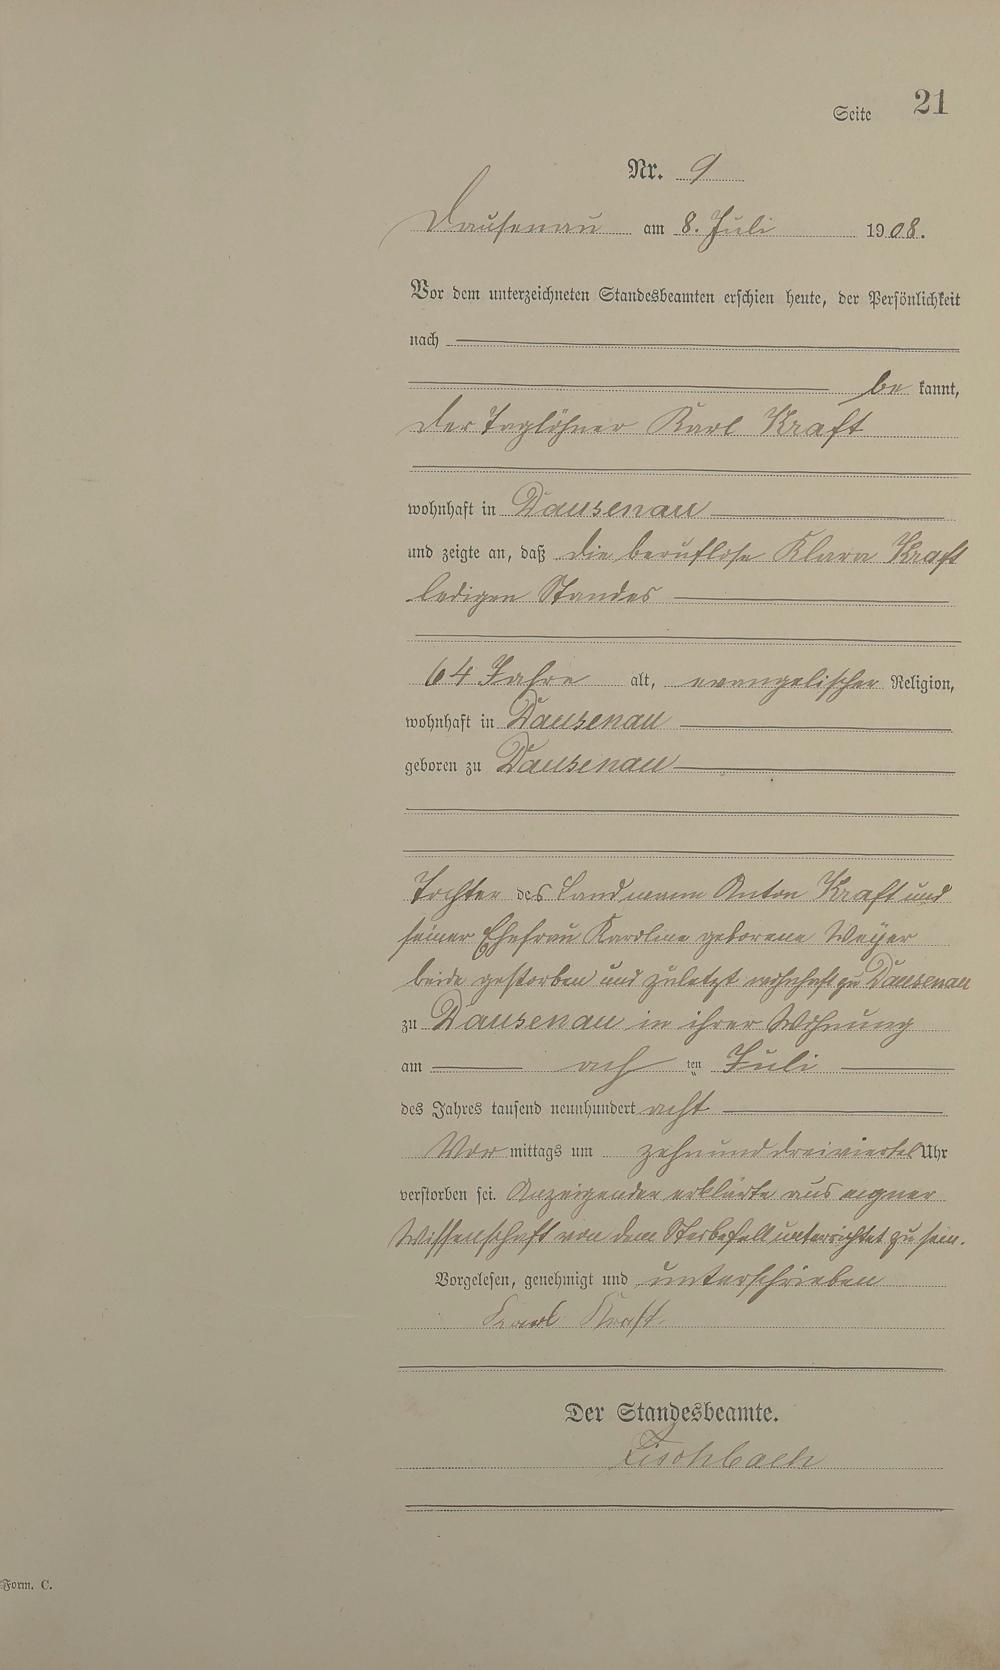 Seite 21
Nr. 9
Dausenau am 8. Juli 1908.
Vor dem unterzeichneten Standesbeamten erschien heute, der Persönlichkeit
nach
be kannt,
der Taglöhner Karl Kraft
wohnhaft in Dausenau
und zeigte an, daß die beruflose Klara Kraft
ledigen Standes
64 Jahre alt, evangelischer Religion,
wohnhaft in Dausenau
geboren zu Dausenau
Tochter des Landmann Anton Kraft und
seiner Ehefrau Karoline geborene Weyer
beide gestorben und zuletzt wohnhaft zu Dausenau
zu Dausenau in ihrer Wohnung
am ach ten Juli
des Jahres tausend neunhundert acht
Vor mittags um zehn und dreiviertel Uhr
verstorben sei. Anzeigender erklärte aus eigner
Wissenschaft von dem Sterbefall unterrichtet zu sein.
Vorgelesen, genehmigt und unterschrieben
Karl Kraft
Der Standesbeamte.
Fischbach
Form. C.